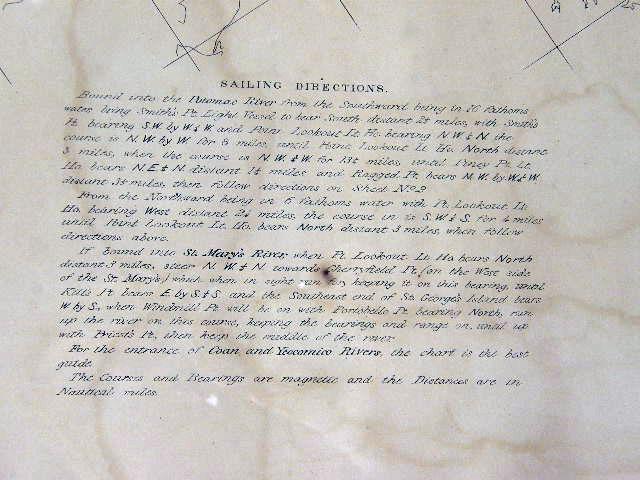 SAILING DIRECTIONS.
Bound into the Potomac River from the Southward being in 16 fathoms
water bring Smith's Pt. Light Vessel to bear South distant 2½ miles, with Smith's
Pt. bearing S.W. by W.¼ W. and Point Lookout Lt. Ho. bearing N.W.¼ N. the
course is N.W. by W. for 8 miles, until Point Lookout Lt. Ho. North distant
3 miles, when the course is N.W.¼ W. for 13½ miles, until Piney Pt. Lt.
Ho. bears N.E.¼ N. distant 1½ miles and Ragged Pt. bears N.W. by W.¼ W.
distant 3½ miles, then follow directions on Sheet No. 2
From the Northward being in 6 fathoms water with Pt. Lookout Lt.
Ho. bearing West distant 2½ miles, the course in is S.W.¼ S. for 4 miles
until Point Lookout Lt. Ho. bears North distant 3 miles, when follow
directions above.
If bound into St. Mary's River, when Pt. Lookout Lt. Ho. bears North
distant 3 miles, steer N.W.¼ N. towards Cherryfield Pt. (on the West side
of the St. Mary's) which when in sight run for keeping it on this bearing, until
Kitts Pt. bears E. by S.¼ S. and the Southeast end of St. George's Island bears
W. by S., when Windmill Pt. will be on with Portobello Pt. bearing North, run
up the river on this course, keeping the bearings and range on, until up
with Priest's Pt., then keep the middle of the river.
For the entrance of Coan and Yeocomico Rivers, the chart is the best
guide.
The Courses and Bearings are magnetic and the Distances are in
Nautical miles.